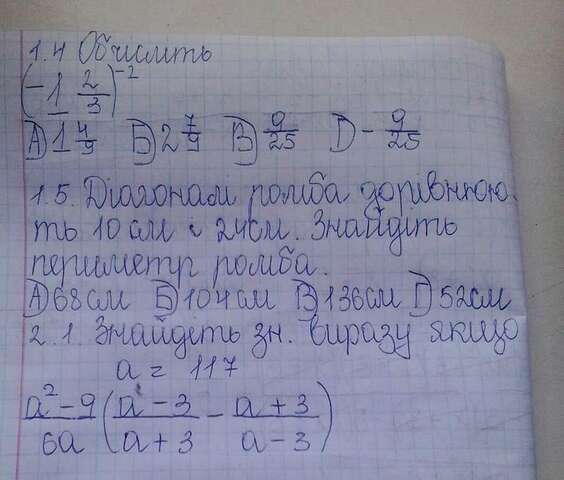 1.4 Обчисліть
(-1 2/3)^-2
А) 1 4/9 Б) 2 7/9 В) 9/25 Г) - 9/25
1.5. Діагоналі ромба дорівнюю-
ть 10 см і 24 см. Знайдіть
периметр ромба.
А) 68 см Б) 104 см В) 136 см Г) 52 см
2.1. Знайдіть зн. виразу якщо
a = 117
(a²-9)/6a ((a-3)/(a+3) - (a+3)/(a-3))